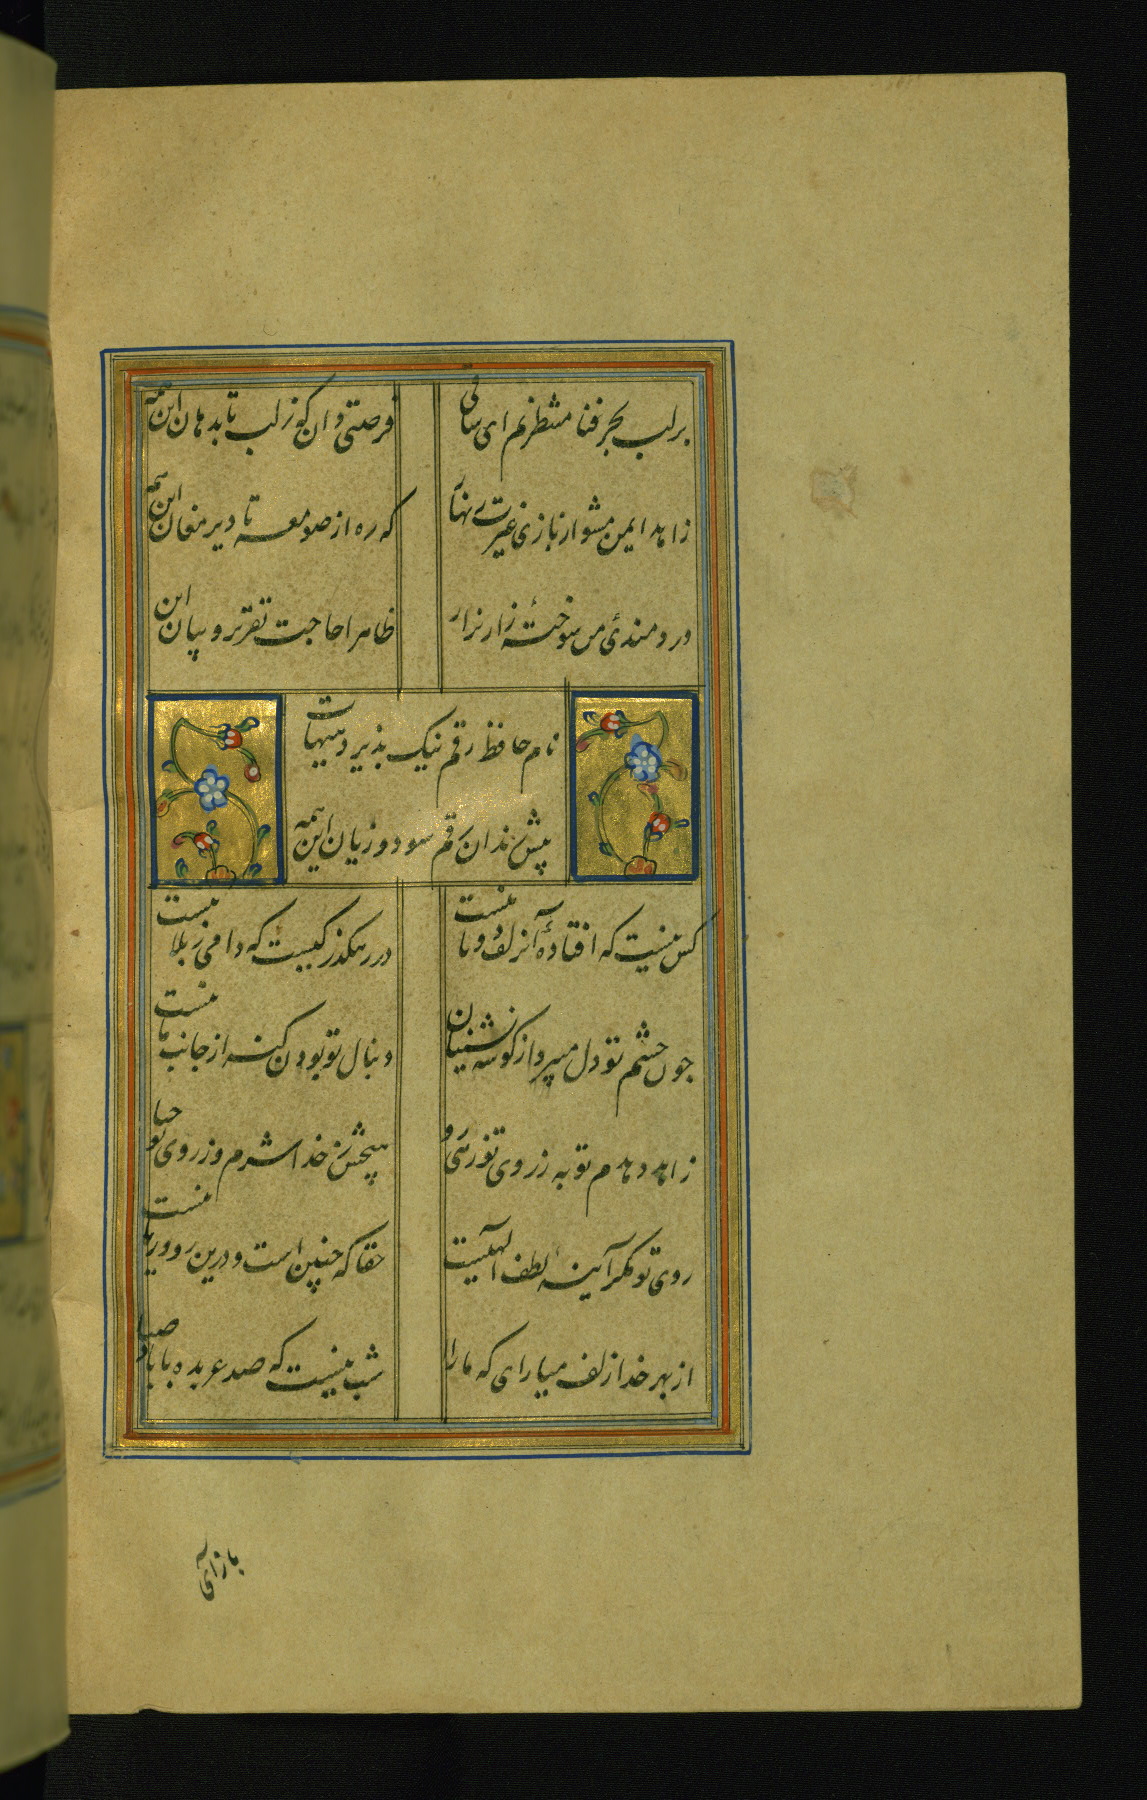 برلب بحر فنا منتظریم ای ساقی
فرصتی دان که ز لب تا بدهان این همه
زاهد ایمن مشو از بازی غیرت زنهار
که ره از صومعه تا دیر مغان این همه
دردمندئ من سوختهٔ زار نزار
ظاهرا حاجت تقریر و بیان این
نام حافظ رقم نیک پذیرد هیهات
پیش رندان رقم سود و زیان این همه
کس نیست که افتادهٔ آن زلف دوتا نیست
در رهگذر کیست که دامی ز بلا نیست
چون چشم تو دل میبرد از گوشه نشینان
دنبال تو بودن گنه از جانب ما نیست
زاهد دهدم توبه ز روی تو زهی رو
هیچش ز خدا شرم و ز روی تو حیا
روی تو مگر آینهٔ لطف الهیست
حقا که چنین است و درین روی و ریا نیست
از بهر خدا زلف میارای که ما را
شب نیست که صد عربده با باد صبا
بازآی که